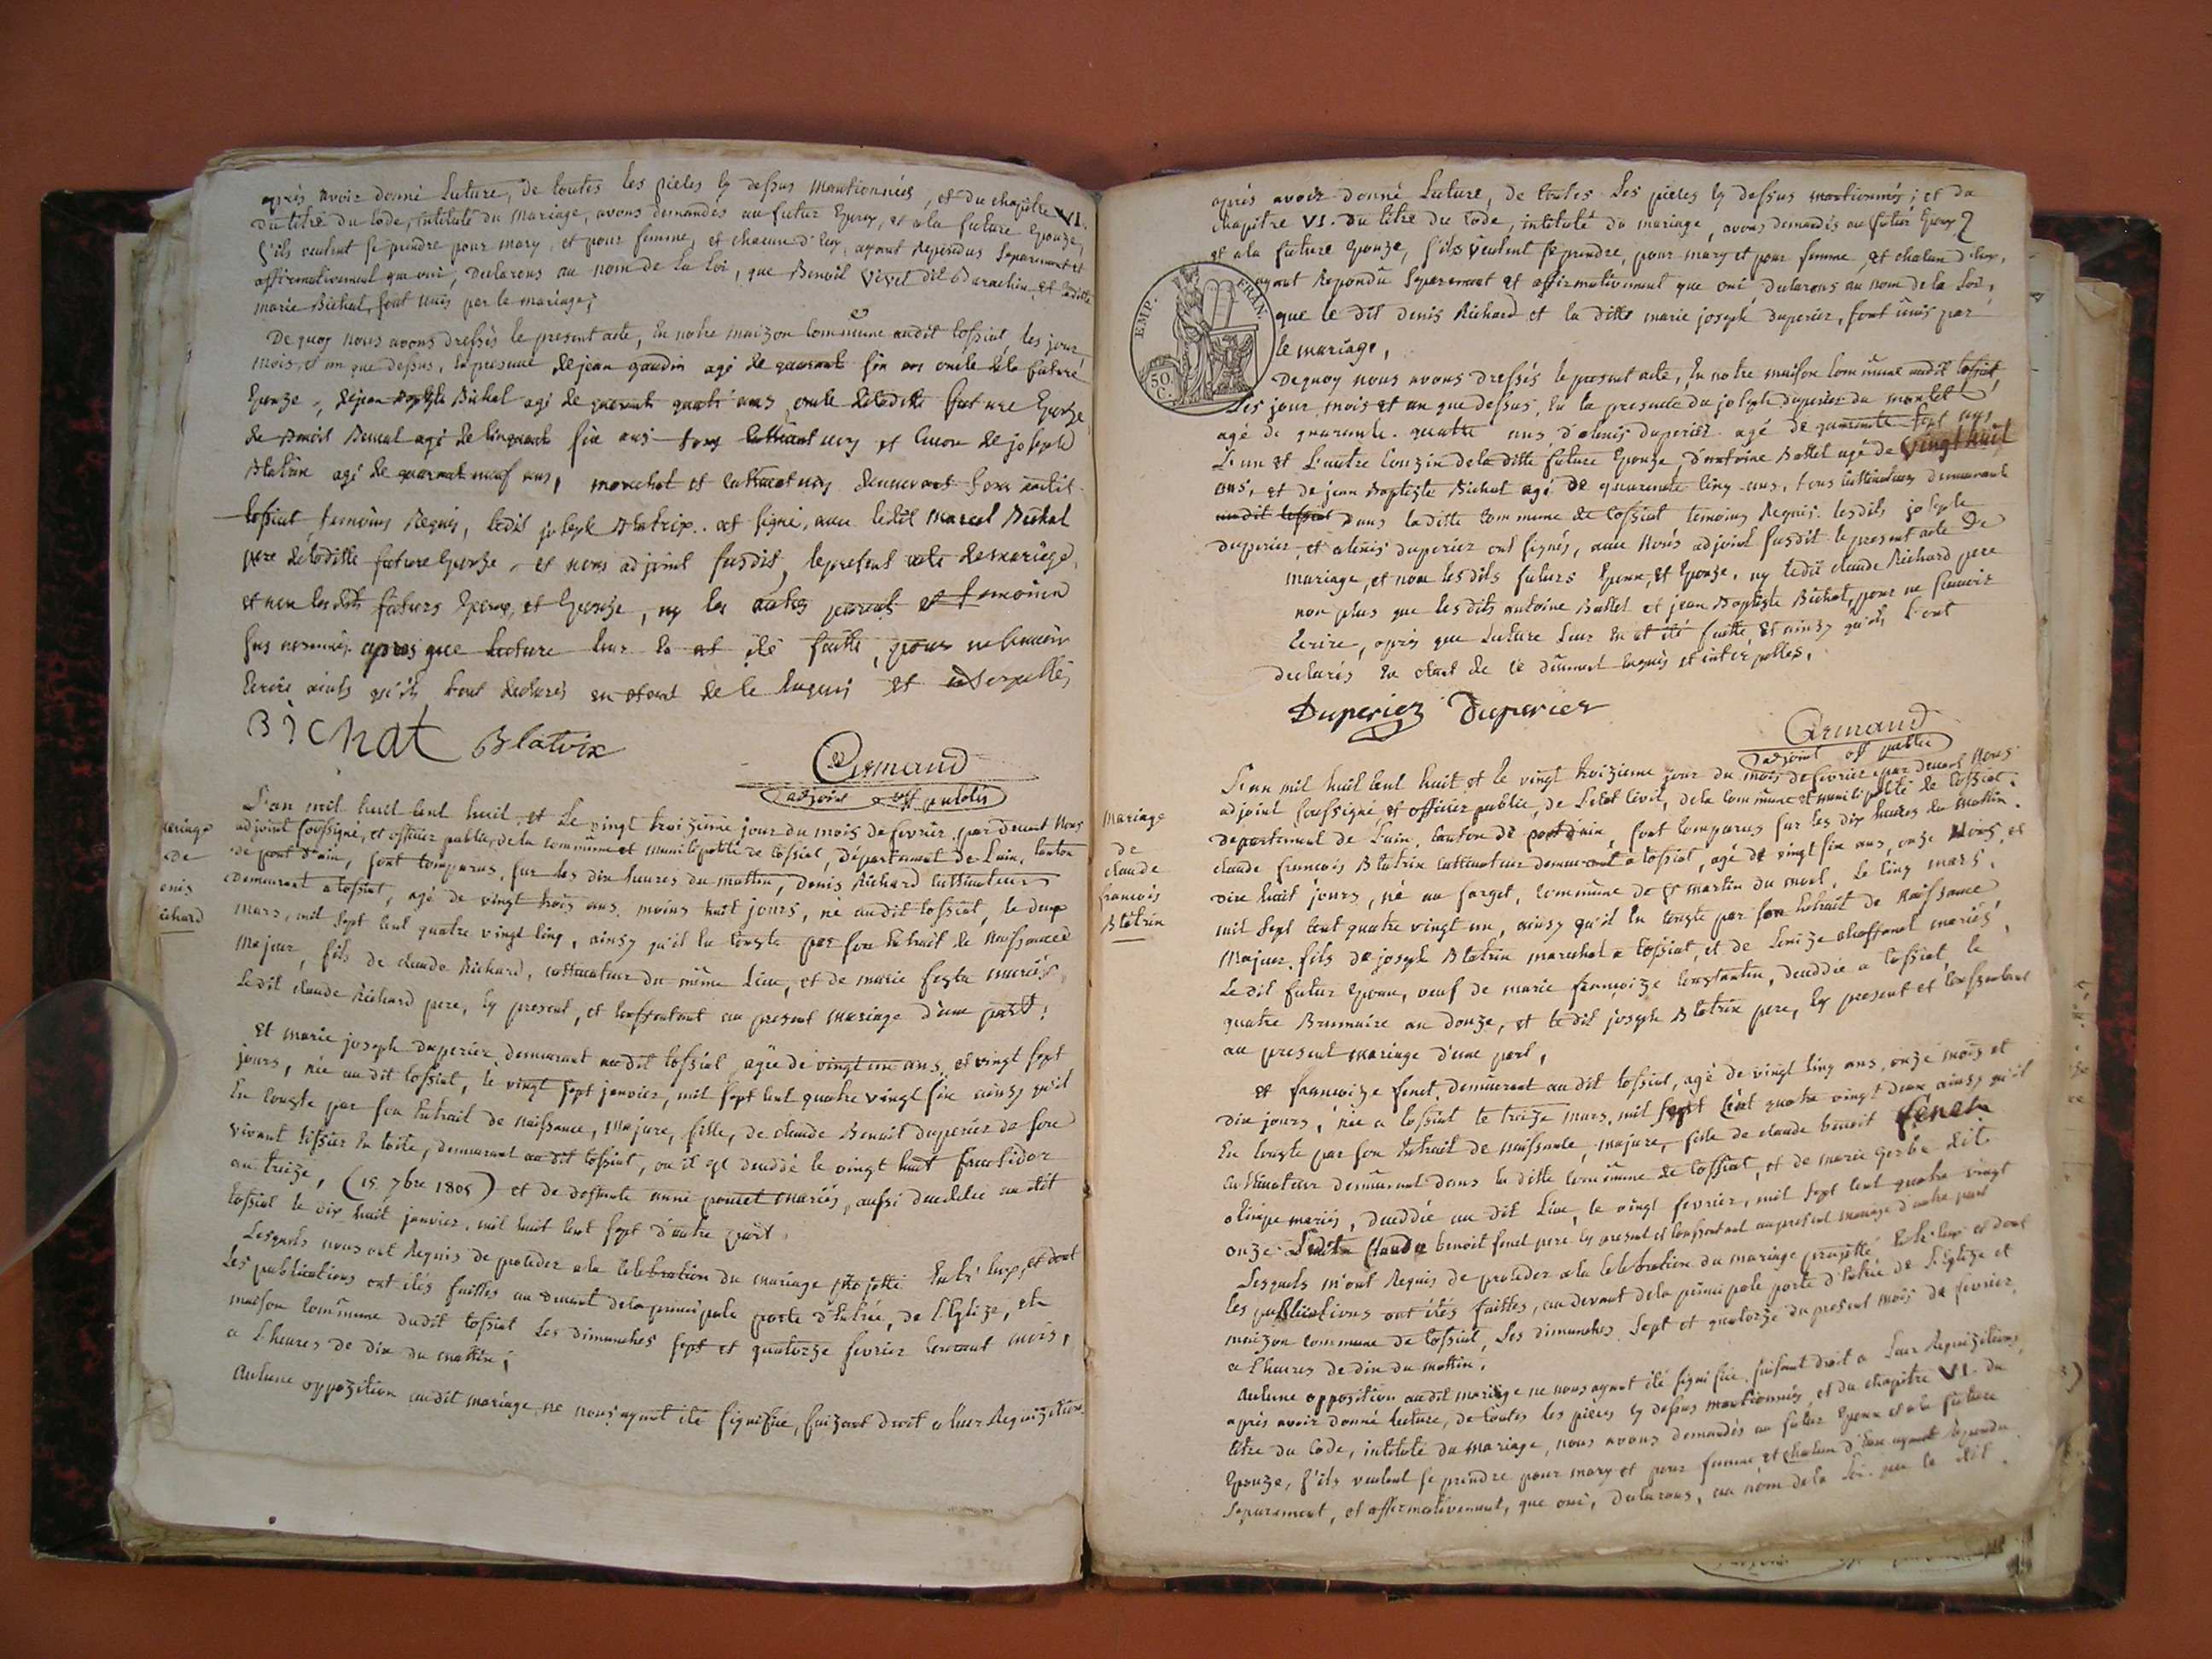 après avoir donné Lecture, de toutes les pieces cy dessus mentionnées, et du chapitre VI.
du titre du Code, intitulé du mariage, avons demandés au futur Epoux, et a la future Epouze,
s'ils veulent se prendre pour mary et pour femme, et chacun d'eux, ayant Repondus separement et
affirmativement que oui, declarons au nom de la Loi, que Benoit Vivet dit Barachin et ladite
marie Bichat, sont unis par le mariage;
De quoy nous avons dressés le present acte, en notre maizon commune audit tossiat, les jour,
mois, et an que dessus, en presence de jean gaudin agé de quarante six ans oncle de la future
Epouze, de jean Baptiste Bichat agé de quarante quatre ans oncle de ladite future Epouze
de Benoit agé de cinquante six ans tous et encore de joseph
Blatrix agé de quarante neuf ans, marechal et cultivateurs demeurant tous audit
tossiat, temoins Requis, ledit joseph Blatrix a signé, avec ledit marcel Bichat
pere de laditte future Epouze, et nous adjoint susdit, le present acte de mariage,
et non lesdits futurs Epoux, et Epouze, ny les autres parents et temoins
sus nommés après que Lecture leur en a été faitte, pour ne scavoir
Ecrire ainsi qu'ils l'ont declarés en etant de ce Enquis et interpellés
Bichat Blatrix
Armand
adjoint off public
mariage
de
enis
ichard
L'an mil huit cent huit, et Le vingt troizieme jour du mois de fevrier, par devant Nous
adjoint soussigné, et officier public, de la commune et municipalité de tossiat, département de Lain, canton
de pont d'ain, sont comparus, sur les dix heures du mattin, denis Richard cultivateur
demeurant a tossiat, agé de vingt trois ans, moins huit jours, né audit tossiat, le deux
mars, mil sept cent quatre vingt cinq, ainsy qu'il en conste par son Extrait de naissance
majeur, fils de claude Richard, cultivateur du même Lieu, et de marie mariés,
Ledit claude Richard pere, cy present, et conssentant au present mariage d'une part;
et marie joseph duperier demeurant audit tossiat, agée de vingt un ans, et vingt sept
jours, née audit tossiat, le vingt sept janvier, mil sept cent quatre vingt six ainsy qu'il
En conste par son Extrait de naissance, majeure, fille, de claude Benoit duperier de son
vivant tissier en toile, demeurant audit tossiat, ou il est deceddé le vingt huit fructidor
an treize, (15 7bre 1805) et de deffunte anne poncet mariés, aussi deceddée audit
tossiat le dix huit janvier, mil huit cent sept d'autre part,
Lesquels nous ont Requis de proceder a la celebration du mariage projetté Entr' Eux, et dont
les publications ont étés faittes au devant de la principale porte d'Entrée, de l'Eglize, et
maison commune dudit tossiat les dimanches sept et quatorze fevrier courant mois,
a l'heures de dix du mattin;
Aucune oppozition audit mariage ne nous ayant été signifiée, faizant droit a leur Requizition
après avoir donné Lecture, de toutes Les pieces cy dessus mentionnés; et du
chapitre VI. du titre du Code, intitulé du mariage, avons demandés au futur Epoux
et a la future Epouze, s'ils veulent se prendre, pour mary et pour femme, et chacun d'eux,
ayant Repondu Separement et affirmativement que oui declarons au nom de la Loi,
que le dit denis Richard et la ditte marie joseph duperier, sont unis par
le mariage,
EMP. FRAN.
50
C.
De quoy nous avons dressés le present acte, En notre maison commune audit tossiat,
Les jour mois et an que dessus, En la presence du joseph duperier du montet
agé de quarante quatre ans, d'alexis duperier agé de quarante sept ans
L'un et L'autre Couzin de la ditte future Epouze, d'antoine Ballet agé de vingt huit
ans, et de jean Baptiste Bichat agé de quarante cinq ans, tous cultivateurs demeurant
audit tossiat dans laditte commune de tossiat temoins Requis. Lesdits joseph
duperier, et alexis duperier ont signés, avec Nous adjoint susdit le present acte de
mariage, et non lesdits futurs Epoux, et Epouze, ny ledit claude Richard pere
non plus que les dits antoine Ballet et jean Baptiste Bichat, pour ne scavoir
Ecrire, après que Lecture leur En a été faitte, et ainsy qu'ils l'ont
declarés En etant de ce dûment Enquis et interpellés.
Duperier Duperier
Armand
adjoint off public
Mariage
de
claude
francois
Blatrix
L'an mil huit cent huit et le vingt troizieme jour du mois de fevrier, par devant Nous
adjoint soussigné et officier public, de L'etat Civil, de la commune et municipalité de tossiat,
departement de L'ain, canton de pont d'ain, sont comparus sur les dix heures du mattin,
claude francois Blatrix cultivateur demeurant a tossiat, agé de vingt six ans, onze Mois et
dix huit jours, né au farget, commune de St martin du mont, Le cinq mars,
mil sept cent quatre vingt un, ainsy qu'il En conste par son Extrait de Naissance
Majeur fils de joseph Blatrix marechal a tossiat, et de mariés,
Le dit futur Epoux, veuf de marie françoize Constantin, deceddée a tossiat, le
quatre Brumaire an douze, et ledit joseph Blatrix pere, cy present et conssentant
au present mariage d'une part,
et francoize fenet demeurant audit tossiat, agé de vingt cinq ans, onze mois et
dix jours, née a tossiat le treize mars, mil sept cent quatre vingt deux ainsy qu'il
En conste par son Extrait de naissance, majeure, fille de claude benoit fenet
cultivateur demeurant dans la ditte commune de tossiat, et de marie Gerbe dit
mariés, deceddée au dit Lieu, le vingt fevrier, mil sept cent quatre vingt
onze. Ledit Claude benoit fenet pere cy present et conssentant au present mariage d'autre part
Lesquels m'ont Requis de proceder a la celebration du mariage projetté Entr'eux et dont
les publications ont étés faittes, au devant de la principale porte d'Entrée de L'Eglize et
maizon commune de tossiat, Les dimanches sept et quatorze du present mois de fevrier,
a l'heures de dix du mattin.
Aucune opposition audit mariage ne nous ayant été signifiée, faisant droit a Leur Requizitions,
après avoir donné lecture, de toutes les pièces cy dessus mentionnés, et du chapitre VI. du
titre du Code, intitulé du mariage, nous avons demandés au futur Epoux et a la future
Epouze, s'ils veulent se prendre pour mary et pour femme et chacun d'Eux ayant Repondu
Separement, et affirmativement, que oui, declarons, au nom de la Loi que le dit